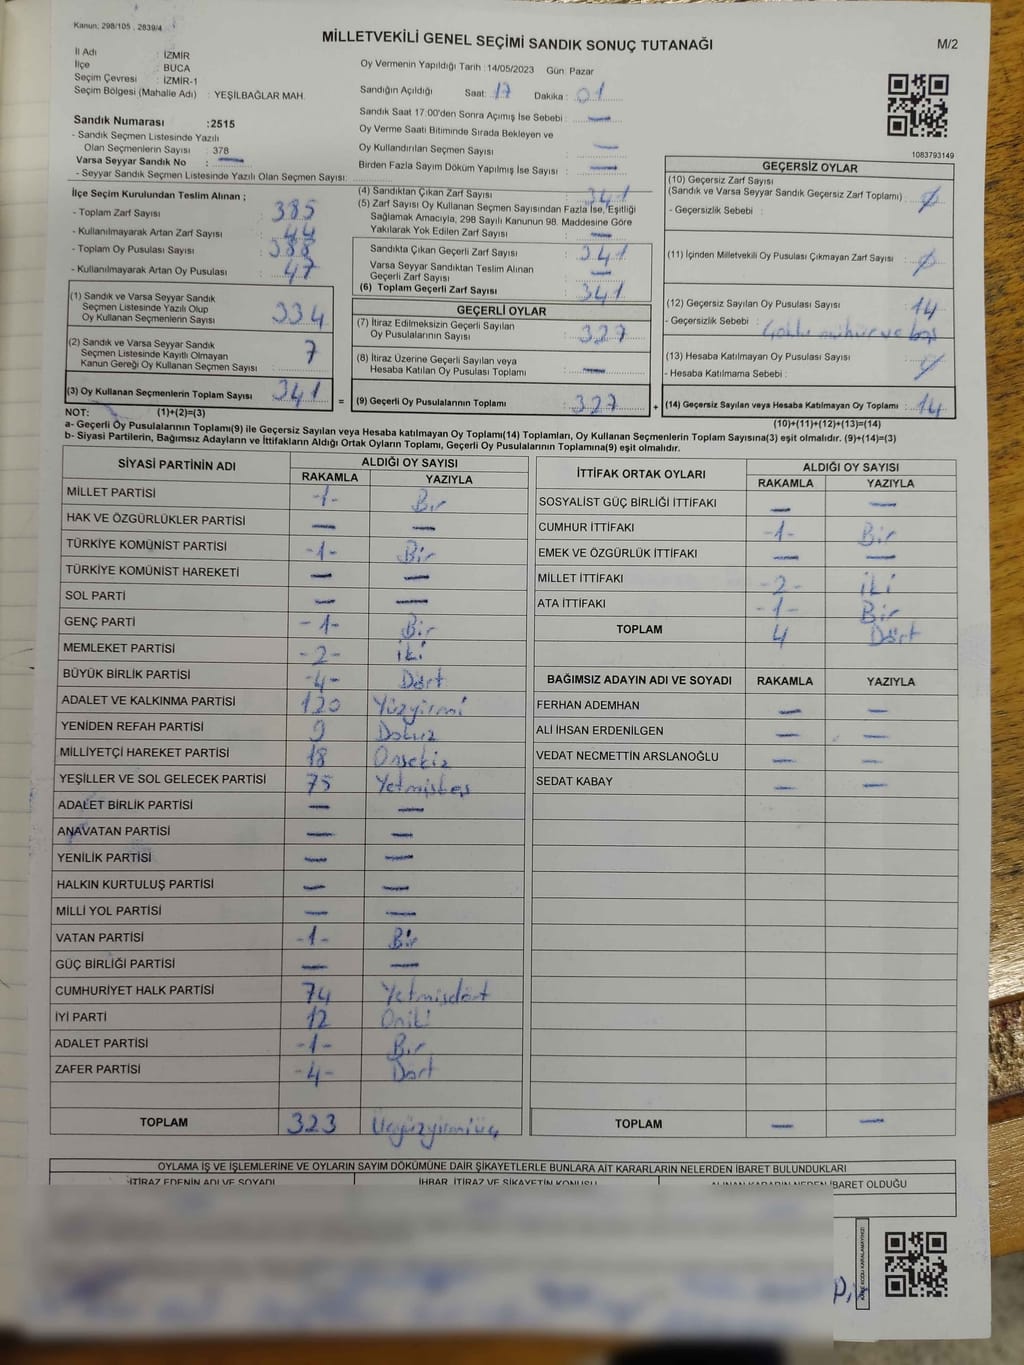 Kanun: 298/105 , 2839/4
MİLLETVEKİLİ GENEL SEÇİMİ SANDIK SONUÇ TUTANAĞI
M/2
İl Adı : İZMİR
İlçe : BUCA
Seçim Çevresi : İZMİR-1
Seçim Bölgesi (Mahalle Adı) : YEŞİLBAĞLAR MAH.
Oy Vermenin Yapıldığı Tarih :14/05/2023 Gün: Pazar
Sandığın Açıldığı Saat: 17 Dakika : 01
Sandık Saat 17:00'den Sonra Açımış İse Sebebi : —
Oy Verme Saati Bitiminde Sırada Bekleyen ve
Oy Kullandırılan Seçmen Sayısı : —
Birden Fazla Sayım Döküm Yapılmış İse Sayısı : —
Sandık Numarası :2515
- Sandık Seçmen Listesinde Yazılı
Olan Seçmenlerin Sayısı : 378
Varsa Seyyar Sandık No : —
- Seyyar Sandık Seçmen Listesinde Yazılı Olan Seçmen Sayısı:
1083793149
İlçe Seçim Kurulundan Teslim Alınan ;
- Toplam Zarf Sayısı : 385
- Kullanılmayarak Artan Zarf Sayısı : 44
- Toplam Oy Pusulası Sayısı : 388
- Kullanılmayarak Artan Oy Pusulası : 47
(1) Sandık ve Varsa Seyyar Sandık
Seçmen Listesinde Yazılı Olup
Oy Kullanan Seçmenlerin Sayısı : 334
(2) Sandık ve Varsa Seyyar Sandık
Seçmen Listesinde Kayıtlı Olmayan
Kanun Gereği Oy Kullanan Seçmen Sayısı : 7
(3) Oy Kullanan Seçmenlerin Toplam Sayısı : 341
(4) Sandıktan Çıkan Zarf Sayısı : 341
(5) Zarf Sayısı Oy Kullanan Seçmen Sayısından Fazla İse, Eşitliği
Sağlamak Amacıyla, 298 Sayılı Kanunun 98. Maddesine Göre
Yakılarak Yok Edilen Zarf Sayısı : —
Sandıkta Çıkan Geçerli Zarf Sayısı : 341
Varsa Seyyar Sandıktan Teslim Alınan
Geçerli Zarf Sayısı : —
(6) Toplam Geçerli Zarf Sayısı : 341
GEÇERLİ OYLAR
(7) İtiraz Edilmeksizin Geçerli Sayılan
Oy Pusulalarının Sayısı : 327
(8) İtiraz Üzerine Geçerli Sayılan veya
Hesaba Katılan Oy Pusulası Toplamı : —
= (9) Geçerli Oy Pusulalarının Toplamı : 327
GEÇERSİZ OYLAR
(10) Geçersiz Zarf Sayısı
(Sandık ve Varsa Seyyar Sandık Geçersiz Zarf Toplamı) : ∅
- Geçersizlik Sebebi :
(11) İçinden Milletvekili Oy Pusulası Çıkmayan Zarf Sayısı : ∅
(12) Geçersiz Sayılan Oy Pusulası Sayısı : 14
- Geçersizlik Sebebi : mühür ve boş
(13) Hesaba Katılmayan Oy Pusulası Sayısı : ∅
- Hesaba Katılmama Sebebi :
+ (14) Geçersiz Sayılan veya Hesaba Katılmayan Oy Toplamı : 14
NOT: (1)+(2)=(3)
(10)+(11)+(12)+(13)=(14)
a- Geçerli Oy Pusulalarının Toplamı(9) ile Geçersiz Sayılan veya Hesaba katılmayan Oy Toplamı(14) Toplamları, Oy Kullanan Seçmenlerin Toplam Sayısına(3) eşit olmalıdır. (9)+(14)=(3)
b- Siyasi Partilerin, Bağımsız Adayların ve İttifakların Aldığı Ortak Oyların Toplamı, Geçerli Oy Pusulalarının Toplamına(9) eşit olmalıdır.
SİYASİ PARTİNİN ADI
ALDIĞI OY SAYISI
RAKAMLA YAZIYLA
MİLLET PARTİSİ -1- Bir
HAK VE ÖZGÜRLÜKLER PARTİSİ — —
TÜRKİYE KOMÜNİST PARTİSİ -1- Bir
TÜRKİYE KOMÜNİST HAREKETİ — —
SOL PARTİ — —
GENÇ PARTİ -1- Bir
MEMLEKET PARTİSİ -2- iki
BÜYÜK BİRLİK PARTİSİ -4- Dört
ADALET VE KALKINMA PARTİSİ 120 Yüzyirmi
YENİDEN REFAH PARTİSİ 9 Dokuz
MİLLİYETÇİ HAREKET PARTİSİ 18 Onsekiz
YEŞİLLER VE SOL GELECEK PARTİSİ 75 Yetmişbeş
ADALET BİRLİK PARTİSİ — —
ANAVATAN PARTİSİ — —
YENİLİK PARTİSİ — —
HALKIN KURTULUŞ PARTİSİ — —
MİLLİ YOL PARTİSİ — —
VATAN PARTİSİ -1- Bir
GÜÇ BİRLİĞİ PARTİSİ — —
CUMHURİYET HALK PARTİSİ 74 Yetmişdört
İYİ PARTİ 12 Oniki
ADALET PARTİSİ -1- Bir
ZAFER PARTİSİ -4- Dört
TOPLAM 323 Üçyüzyirmiüç
İTTİFAK ORTAK OYLARI
ALDIĞI OY SAYISI
RAKAMLA YAZIYLA
SOSYALİST GÜÇ BİRLİĞİ İTTİFAKI — —
CUMHUR İTTİFAKI -1- Bir
EMEK VE ÖZGÜRLÜK İTTİFAKI — —
MİLLET İTTİFAKI -2- iki
ATA İTTİFAKI -1- Bir
TOPLAM 4 Dört
BAĞIMSIZ ADAYIN ADI VE SOYADI RAKAMLA YAZIYLA
FERHAN ADEMHAN — —
ALİ İHSAN ERDENİLGEN — —
VEDAT NECMETTİN ARSLANOĞLU — —
SEDAT KABAY — —
TOPLAM — —
OYLAMA İŞ VE İŞLEMLERİNE VE OYLARIN SAYIM DÖKÜMÜNE DAİR ŞİKAYETLERLE BUNLARA AİT KARARLARIN NELERDEN İBARET BULUNDUKLARI
İTİRAZ EDENİN ADI VE SOYADI
İHBAR, İTİRAZ VE ŞİKAYETİN KONUSU
ALINAN KARARIN NEDEN İBARET OLDUĞU